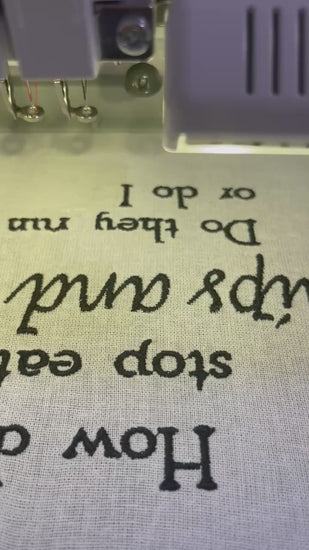 How
stop eat
ips and
Do they run
or do I